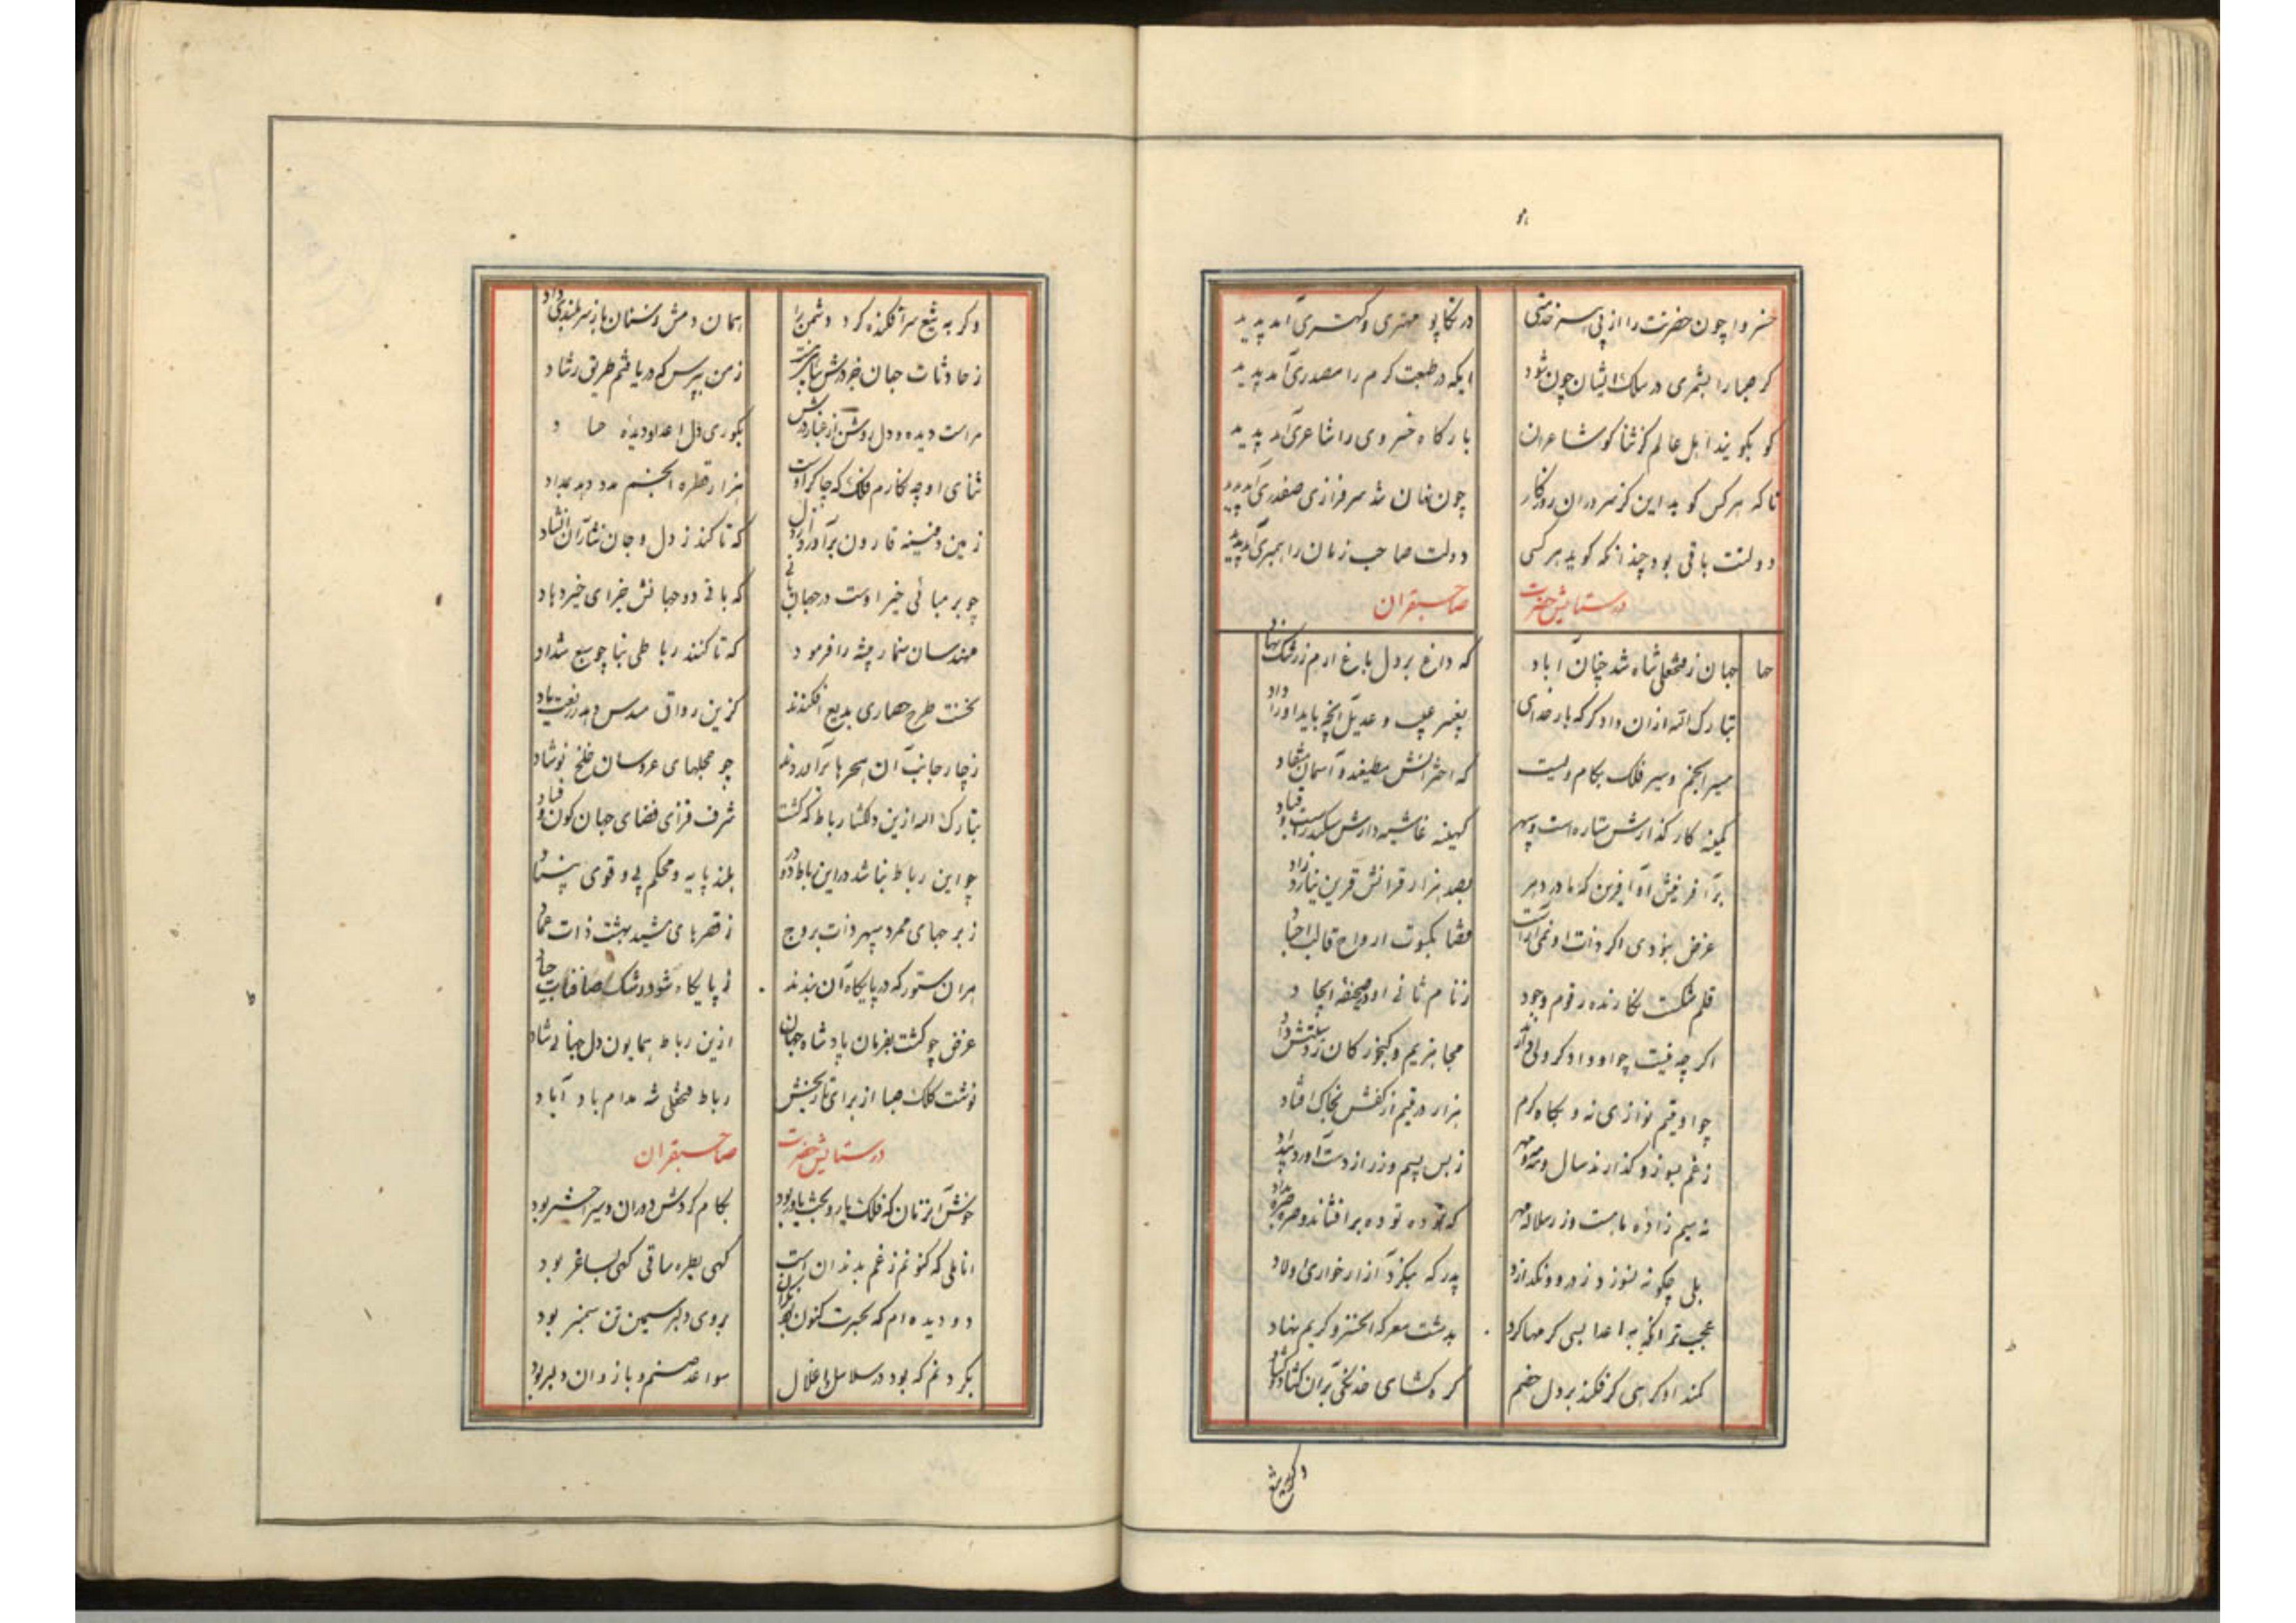 خسروا چون حضرتت را از پی خدمتی
در تکاپو مهتری و کهتری آمد پدید
گر صبا را بشمری در سلک ایشان چون شود
ایکه در طبعت کرم را مصدری آمد پدید
کو بکویند اهل عالم کز ثنا کو شاعران
بارکاه خسروی را شاعری آمد پدید
تا که هر کس کوید این کز سروران روزکار
چون فغان شد سرفرازی صفدری آمد پدید
دولتت باقی بود چندانکه کوید هر کسی
دولت صاحب زمان را همبری آمد پدید
در ستایش حضرت صاحبقران
جهان ز فتحعلی شاه شد چنان آباد
که داغ بر دل باغ ارم ز رشک نهاد
تبارک الله ازان دادکر که بار خدای
بغیر عیب و عدیل آنچه باید او را داد
مسیر انجم و سیر فلک بکام ویست
که اخترانش مطیعند و آسمان منقاد
کمینه کارکذارش ستاره است و سپهر
کهینه غاشیه دارش سکندرست و قباد
بر آفرینش او آفرین که مادر دهر
بصد هزار قرانش قرین نیارد زاد
غرض نبودی اکر ذات او نمی آراست
قضا بکسوت ارواح قالب اجساد
قلم شکست نکارنده رقوم وجود
ز نام ثانی او در صحیفه ایجاد
اکر چه نیست چو او دادکر ولی آمد
چو او یتیم نوازی نه و بکاه کرم
هزار در یتیم از کفش بخاک افتاد
ز غم بسوزد و کدازند سال و مه و مهر
ز بس سیم و زر از دست او رسد بیداد
نه سیم زاده ماهست و زر سلاله مهر
که توده توده برافشاند و
بلی چکونه نسوزد ز درد و نکدازد
پدر که میکرد آزار خواری اولاد
عجب تر آنکه به اعدا بسی کرمها کرد
بدشت معرکه آن خسرو کریم نهاد
کمند او کرهی کر فکند بر دل خصم
کره کشای خدنکی بر آن کشاد
وکر به تیغ
وکر به تیغ سر افکنده کرد دشمن را
همان دمش ز سنان باز سربلندی داد
ز حادثات جهان خود رش
ز من بپرس که دریافتم طریق رشاد
مراست دیده و دل روشن از غبار درش
بکوری دل اعدا و دیده حساد
ثنای او چه نکارم فلک که چاکر اوست
هزار قطره انجم مدد دهد بمداد
زمین دفینه قارون برآورد از دل
که تا کند ز دل و جان نثار آن
چو بر مبانی خیر اوست در جهان بانی
که باقی دو جهانش جزای خیر دهاد
مهندسان سنمار پیشه را فرمود
که تا کنند رباطی بنا چو سبع شداد
نخست طرح حصاری بدیع افکندند
کزین رواق مسدس دهد ز رفعت یاد
ز چار جانب آن حجرها برآوردند
چو حجلهای عروسان خلخ نوشاد
تبارک الله ازین دلکشا رباط که کشت
شرف فزای فضای جهان کون و فساد
چو این رباط بنا شد در این رباط دودر
بلند پایه و محکم پی و قوی بنیاد
ز برجهای ممرد سپهر ذات بروج
ز قصرهای مشید بهشت ذات عماد
هر آن ستور که در پایکاه آن بندند
ز پایکاه شود رشک صافنات جیاد
غرض چو کشت بفرمان پادشاه جهان
ازین رباط همایون دل جهانی شاد
نوشت کلک صبا از برای تاریخش
رباط فتحعلی شه مدام باد آباد
در ستایش حضرت صاحبقران
خوش آنزمان که فلک یار و بخت یاور بود
بکام کردش دوران و سیر اختر بود
اناملی که کنونم ز غم بدندان است
کهی بطره ساقی کهی بساغر بود
دو دیده ام که بحیرت کنون بود نکران
بروی دلبر سیمین تن سمنبر بود
بکردنم که بود در سلاسل و اغلال
سواعد صنم و بازوان دلبر بود